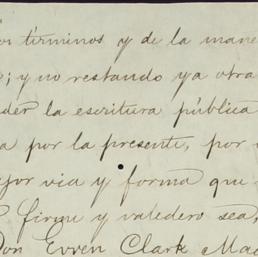 términos y de la mane
; y no restando ya otra
la escritura pública
a por la presente, por
via y forma que
firme y valedero sea,
Don Evven Clark Mac